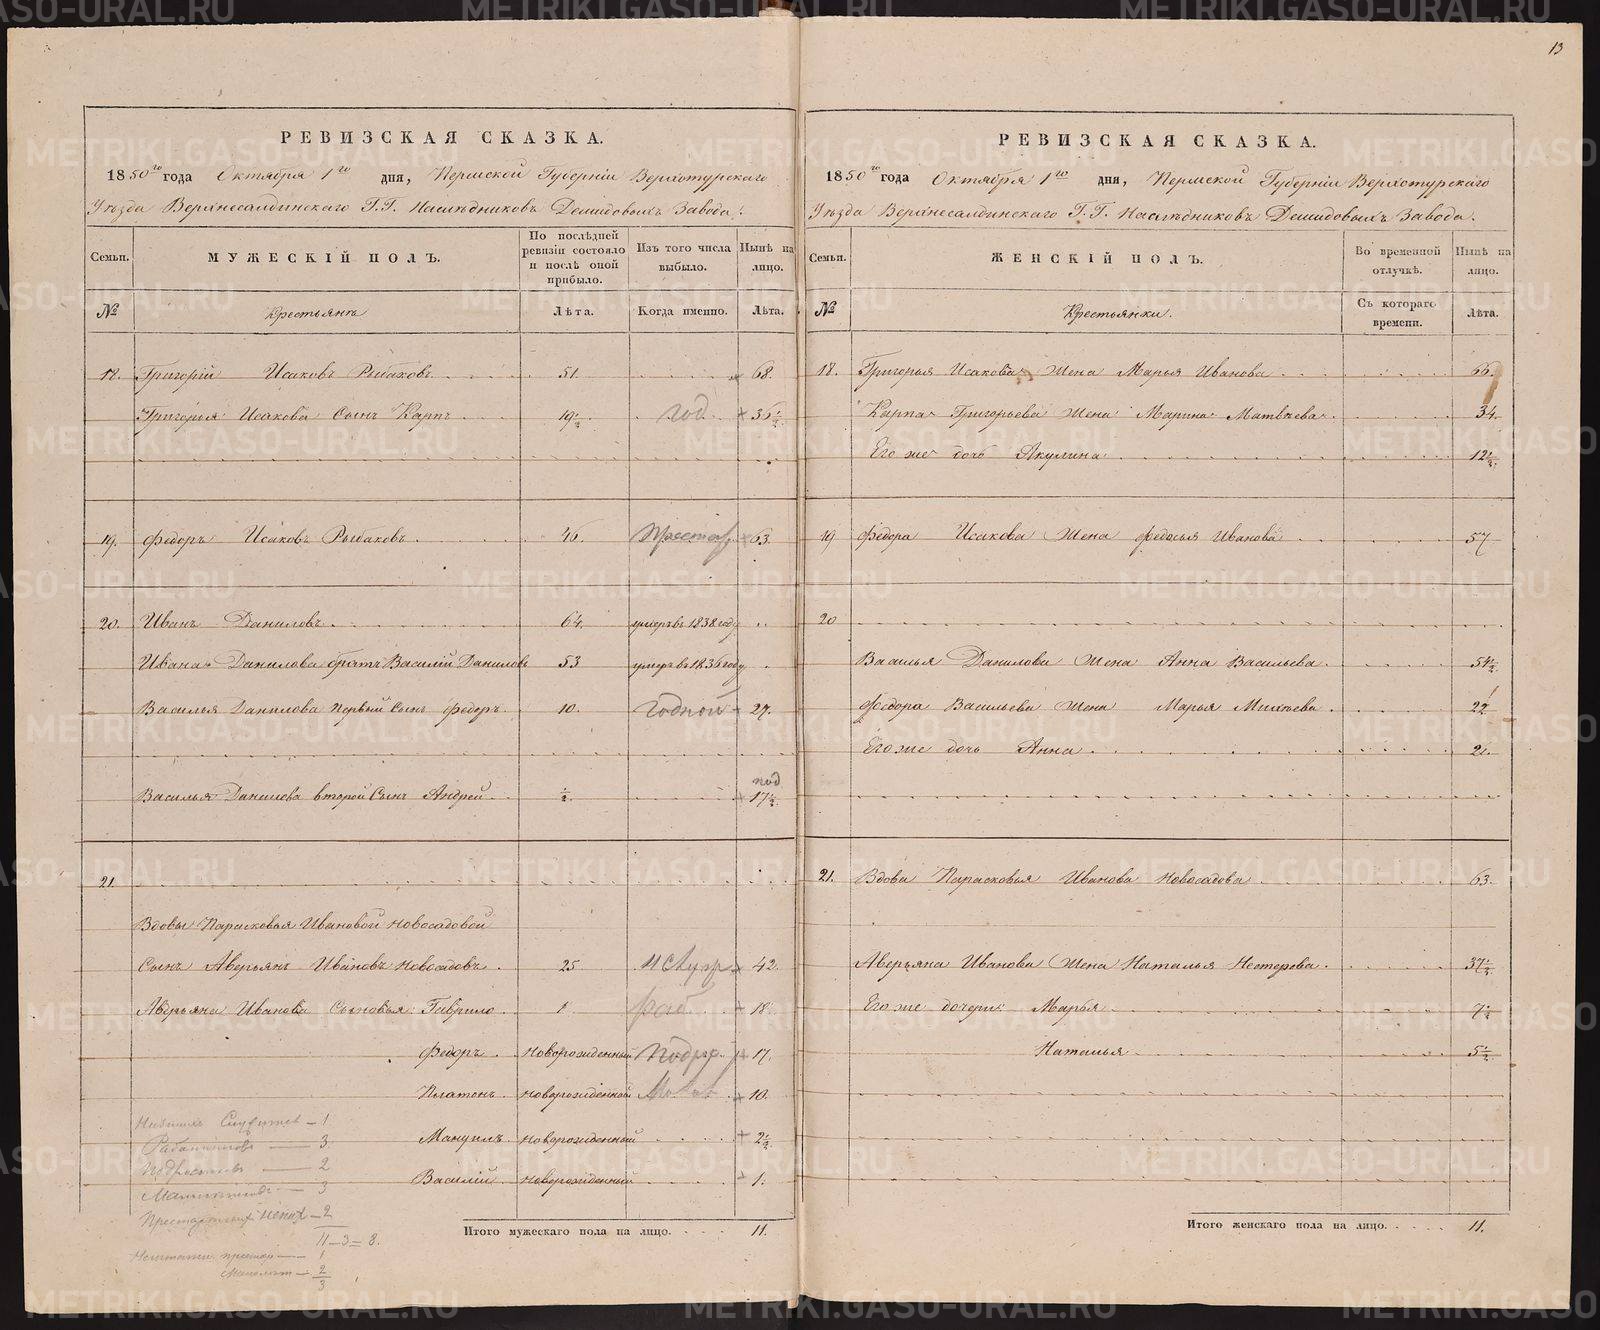 13
РЕВИЗСКАЯ СКАЗКА.
1850го года Октября 1го дня, Пермской Губерніи Верхотурскаго
Уѣзда Верхнесалдинскаго Г.Г. Наслѣдниковъ Демидовыхъ Завода.
Семьи.
МУЖЕСКІЙ ПОЛЪ.
По послѣдней ревизіи состояло и послѣ оной прибыло.
Изъ того числа выбыло.
Нынѣ на лицо.
№
Крестьянъ
Лѣта.
Когда именно.
Лѣта.
18. Григорій Исаковъ Рыбаковъ 51. 68.
Григорья Исакова Сынъ Карпъ 19½ год 36½
19. Федоръ Исаковъ Рыбаковъ 46. 63.
20. Иванъ Даниловъ 64. умеръ въ 1838 году
Ивана Данилова братъ Василій Даниловъ 53 умеръ въ 1836 году
Василья Данилова первый Сынъ Федоръ 10. годной 27.
под
Василья Данилова второй Сынъ Андрей ½ 17½
21.
Вдовы Парасковья Ивановой Новосадовой
Сынъ Аверьянъ Ивановъ Новосадовъ 25 42.
Аверьяна Иванова Сыновья: Гаврило 1 раб 18
Федоръ Новорожденный 17.
Платонъ новорожденной 10.
Мануилъ новорожденный 2½
Василій новорожденный 1.
Итого мужескаго пола на лицо. 11.
— 1
— 3
— 2
— 3
— 2
11—3=8.
— 1
— 2
3
РЕВИЗСКАЯ СКАЗКА.
1850го года Октября 1го дня, Пермской Губерніи Верхотурскаго
Уѣзда Верхнесалдинскаго Г.Г. Наслѣдниковъ Демидовыхъ Завода.
Семьи.
ЖЕНСКІЙ ПОЛЪ.
Во временной отлучкѣ.
Нынѣ на лицо.
№
Крестьянки.
Съ котораго времени.
Лѣта.
18. Григорья Исакова Жена Марья Иванова 66
Карпа Григорьева Жена Марина Матвѣева 34
Его же дочь Акулина 12½
19 Федора Исакова Жена Федосья Иванова 57
20
Василья Данилова Жена Анна Васильева 54½
Федора Васильева Жена Марья Михѣева 22
Его же дочь Анна 2.
21. Вдова Парасковья Иванова Новосадова 63.
Аверьяна Иванова Жена Наталья Нестерова 37½
Его же дочери: Марья 7½
Наталья 5½
Итого женскаго пола на лицо. 11.
METRIKI.GASO-URAL.RU